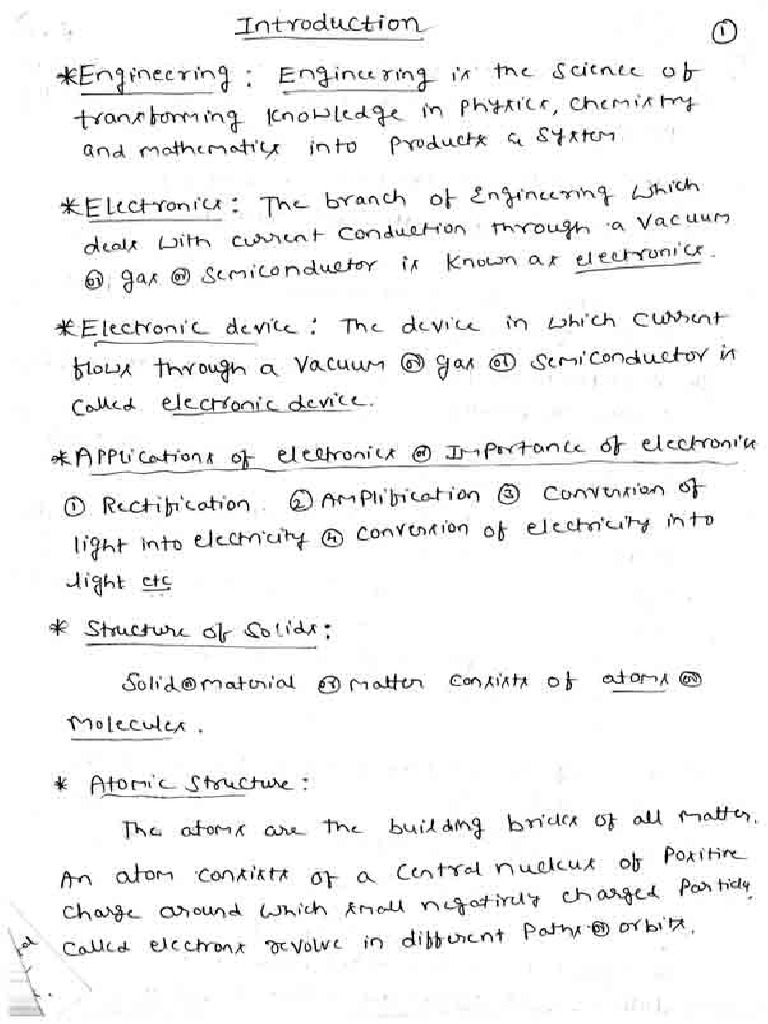 Introduction
①
*Engineering: Engineering is the science of
transforming knowledge in physics, chemistry
and mathematics into products & system
*Electronics: The branch of Engineering which
deals with current conduction through a vacuum
(or) gas (or) semiconductor is known as electronics.
*Electronic device: The device in which current
flows through a vacuum (or) gas (or) semiconductor is
called electronic device.
*Applications of electronics (or) Importance of electronics
① Rectification ② Amplification ③ Conversion of
light into electricity ④ Conversion of electricity into
light etc
* Structure of Solids:
Solid (or) material (or) matter consists of atoms (or)
molecules.
* Atomic Structure:
The atoms are the building bricks of all matter.
An atom consists of a central nucleus of positive
charge around which small negatively charged particles
called electrons revolve in different paths (or) orbits.